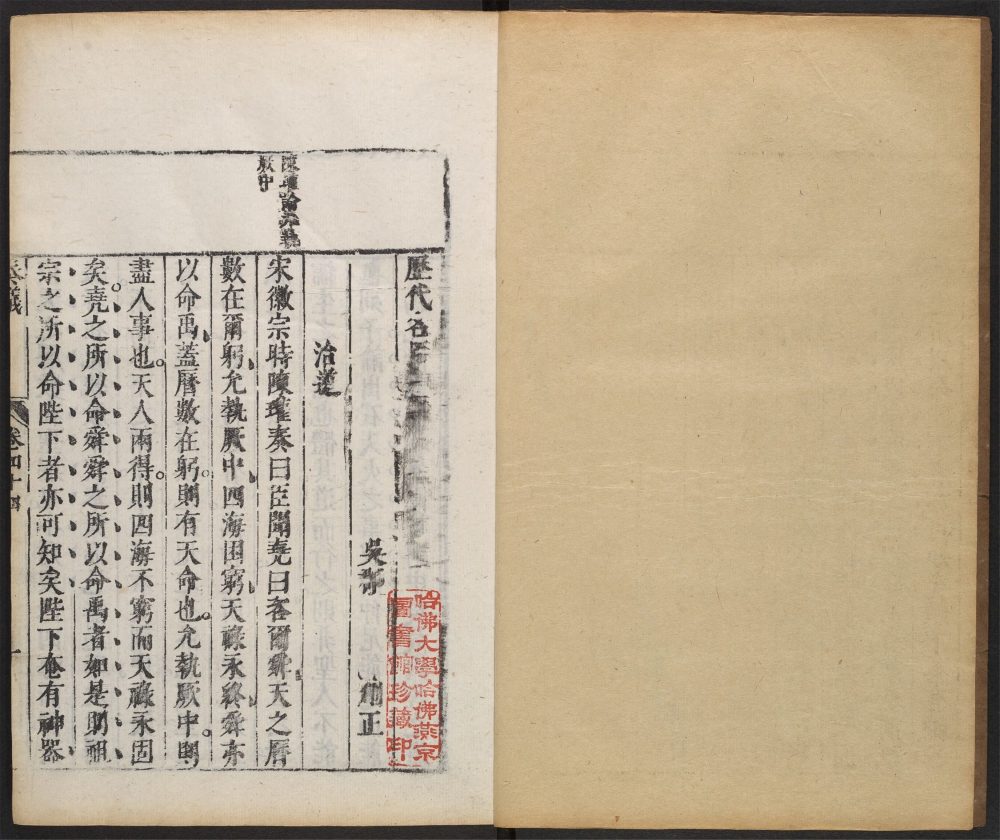 歷代名臣
吳郡 刪正
治道
陳瓘論允執
厥中
宋徽宗時陳瓘奏曰臣聞堯曰咨爾舜天之曆
數在爾躬允執厥中四海困窮天祿永終舜亦
以命禹蓋曆數在躬則有天命也允執厥中則
盡人事也天人兩得則四海不窮而天祿永固
矣堯之所以命舜舜之所以命禹者如是則祖
宗之所以命陛下者亦可知矣陛下奄有神器
奏議 卷四十四 一
哈佛大學哈佛燕京
圖書館珍藏印